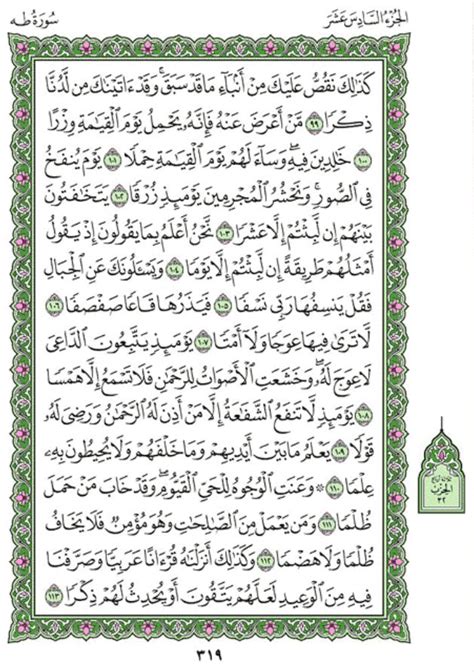 الجُزءُ السَّادِسَ عَشَرَ
سُورَةُ طه
كَذَٰلِكَ نَقُصُّ عَلَيْكَ مِنْ أَنۢبَآءِ مَا قَدْ سَبَقَ ۚ وَقَدْ ءَاتَيْنَٰكَ مِن لَّدُنَّا
ذِكْرًا ٩٩ مَّنْ أَعْرَضَ عَنْهُ فَإِنَّهُۥ يَحْمِلُ يَوْمَ ٱلْقِيَٰمَةِ وِزْرًا
١٠٠ خَٰلِدِينَ فِيهِ ۖ وَسَآءَ لَهُمْ يَوْمَ ٱلْقِيَٰمَةِ حِمْلًا ١٠١ يَوْمَ يُنفَخُ
فِى ٱلصُّورِ ۚ وَنَحْشُرُ ٱلْمُجْرِمِينَ يَوْمَئِذٍ زُرْقًا ١٠٢ يَتَخَٰفَتُونَ
بَيْنَهُمْ إِن لَّبِثْتُمْ إِلَّا عَشْرًا ١٠٣ نَّحْنُ أَعْلَمُ بِمَا يَقُولُونَ إِذْ يَقُولُ
أَمْثَلُهُمْ طَرِيقَةً إِن لَّبِثْتُمْ إِلَّا يَوْمًا ١٠٤ وَيَسْـَٔلُونَكَ عَنِ ٱلْجِبَالِ
فَقُلْ يَنسِفُهَا رَبِّى نَسْفًا ١٠٥ فَيَذَرُهَا قَاعًا صَفْصَفًا ١٠٦
لَّا تَرَىٰ فِيهَا عِوَجًا وَلَآ أَمْتًا ١٠٧ يَوْمَئِذٍ يَتَّبِعُونَ ٱلدَّاعِىَ
لَا عِوَجَ لَهُۥ ۖ وَخَشَعَتِ ٱلْأَصْوَاتُ لِلرَّحْمَٰنِ فَلَا تَسْمَعُ إِلَّا هَمْسًا
١٠٨ يَوْمَئِذٍ لَّا تَنفَعُ ٱلشَّفَٰعَةُ إِلَّا مَنْ أَذِنَ لَهُ ٱلرَّحْمَٰنُ وَرَضِىَ لَهُۥ
قَوْلًا ١٠٩ يَعْلَمُ مَا بَيْنَ أَيْدِيهِمْ وَمَا خَلْفَهُمْ وَلَا يُحِيطُونَ بِهِۦ
عِلْمًا ١١٠ ۞ وَعَنَتِ ٱلْوُجُوهُ لِلْحَىِّ ٱلْقَيُّومِ ۖ وَقَدْ خَابَ مَنْ حَمَلَ
ظُلْمًا ١١١ وَمَن يَعْمَلْ مِنَ ٱلصَّٰلِحَٰتِ وَهُوَ مُؤْمِنٌ فَلَا يَخَافُ
ظُلْمًا وَلَا هَضْمًا ١١٢ وَكَذَٰلِكَ أَنزَلْنَٰهُ قُرْءَانًا عَرَبِيًّا وَصَرَّفْنَا
فِيهِ مِنَ ٱلْوَعِيدِ لَعَلَّهُمْ يَتَّقُونَ أَوْ يُحْدِثُ لَهُمْ ذِكْرًا ١١٣
الحِزْب
٣٢
٣١٩